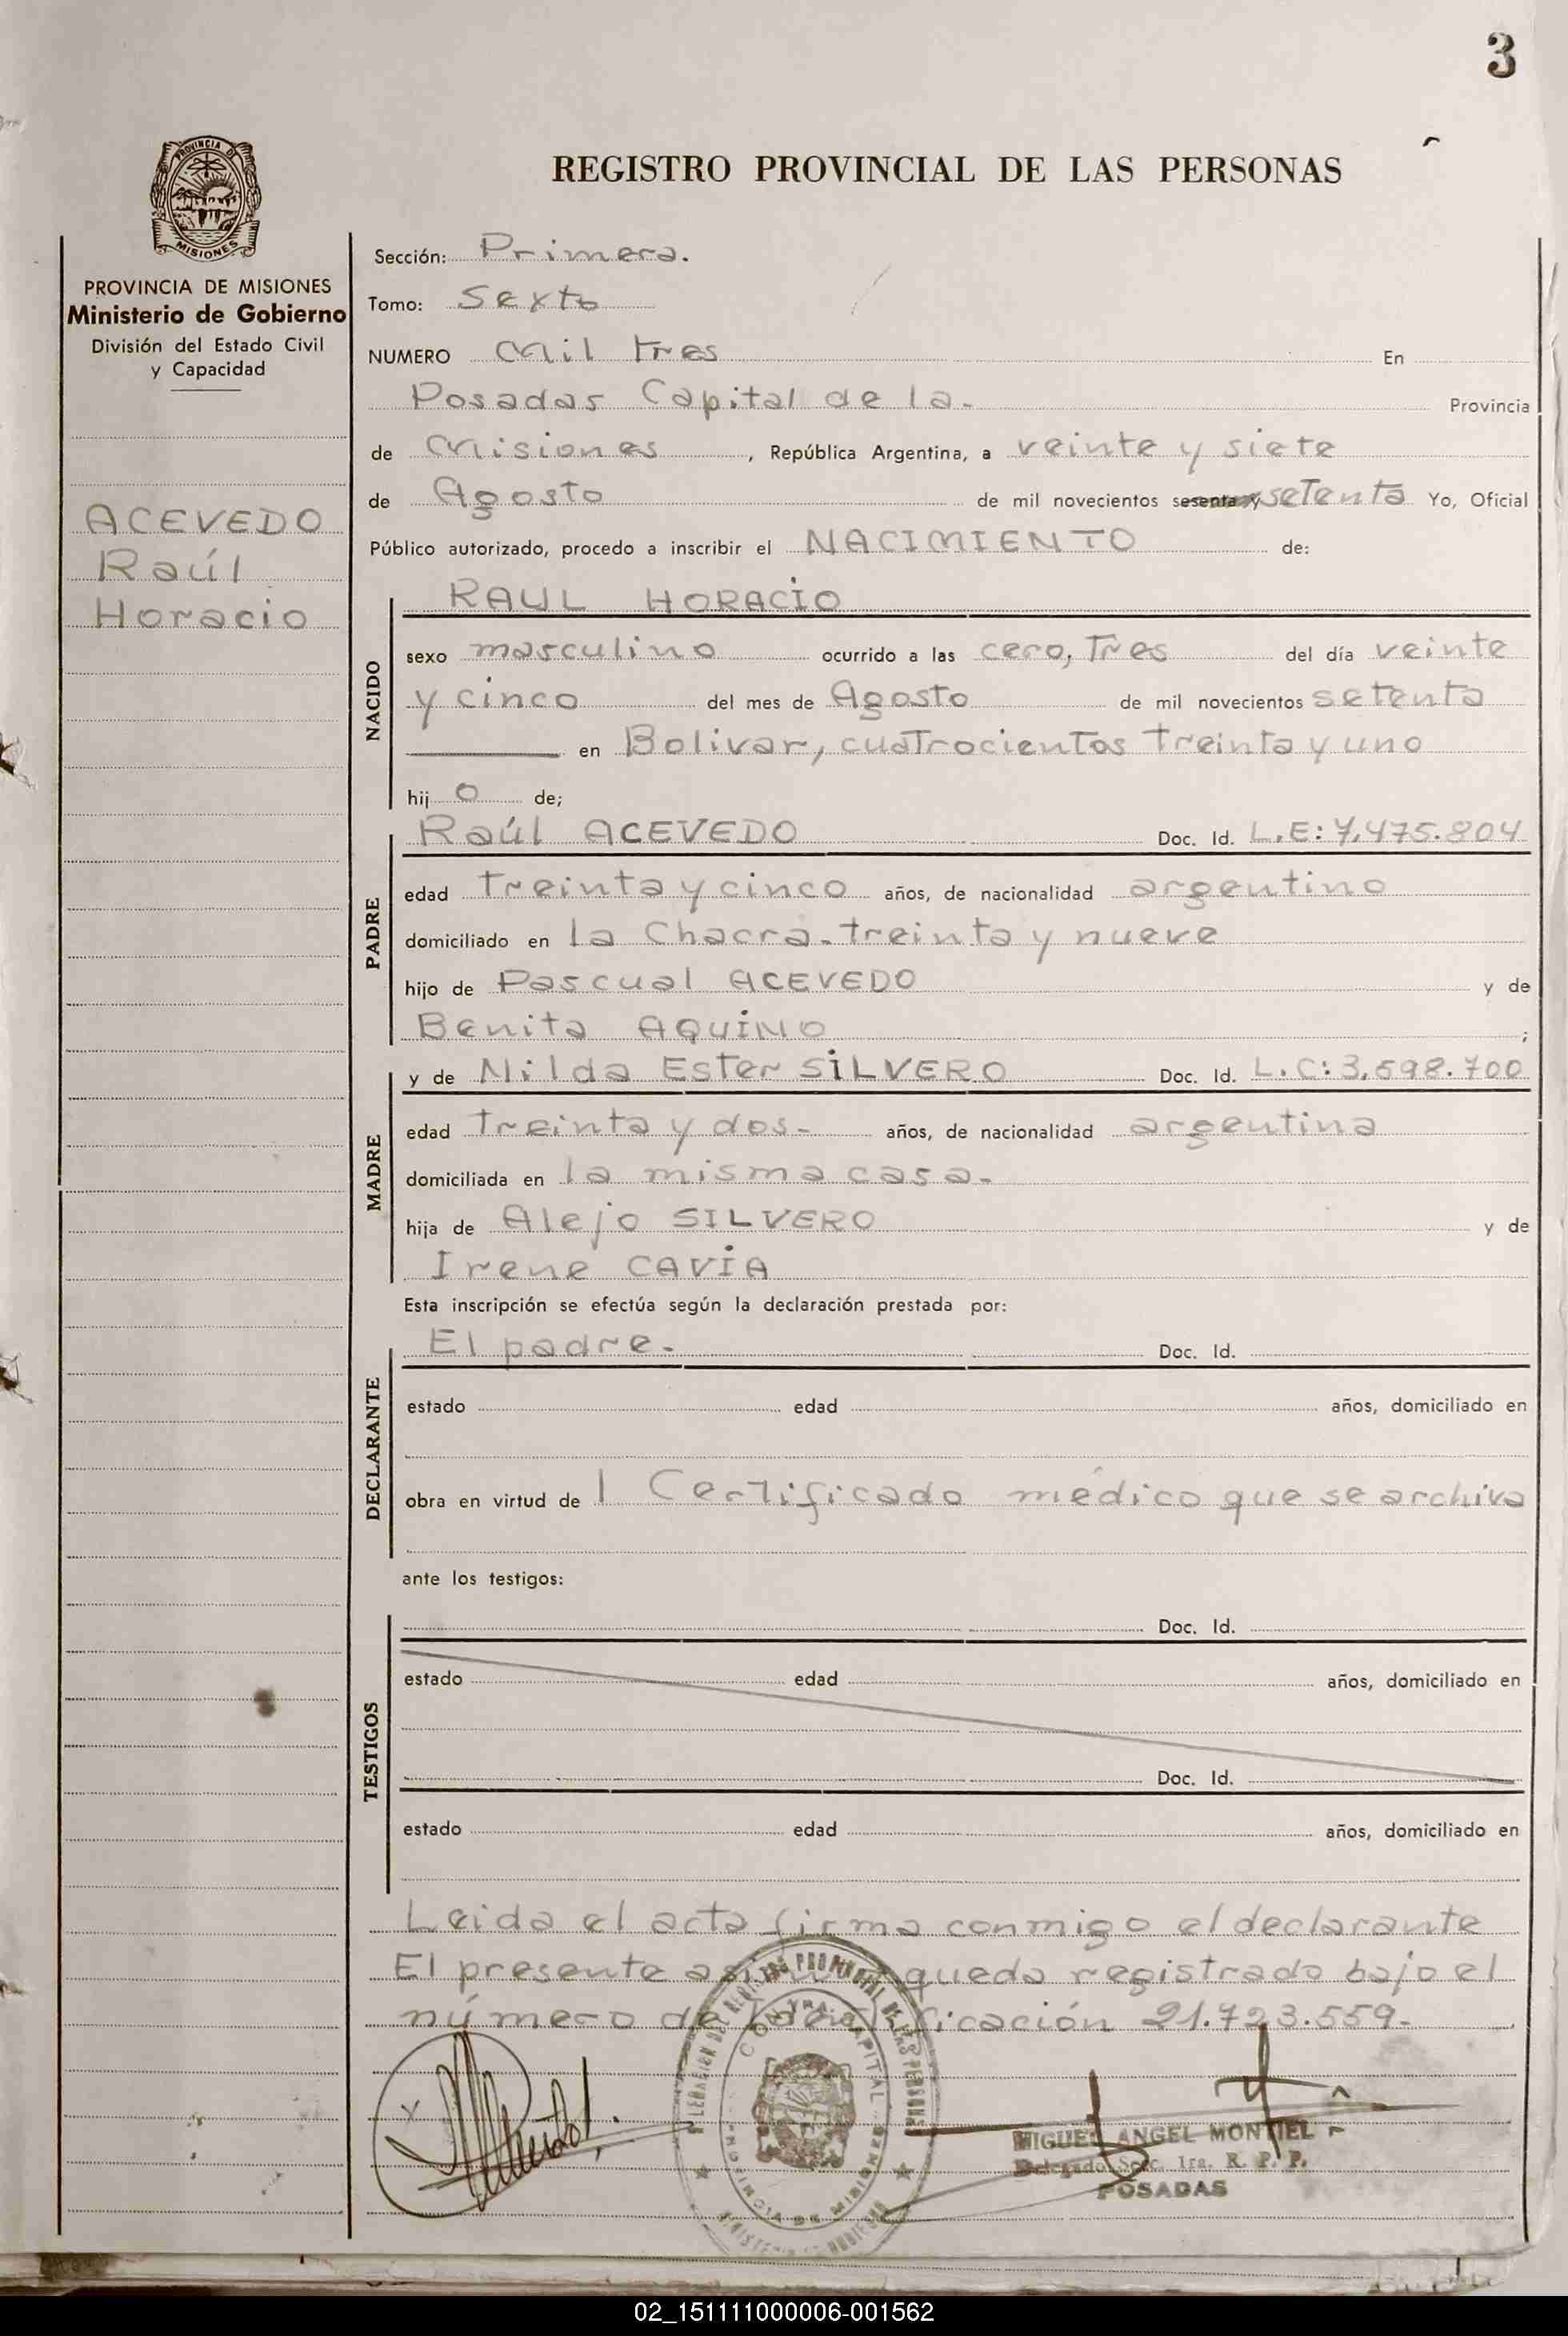 3
PROVINCIA DE
MISIONES
REGISTRO PROVINCIAL DE LAS PERSONAS
PROVINCIA DE MISIONES
Ministerio de Gobierno
División del Estado Civil
y Capacidad
ACEVEDO
Raúl
Horacio
Sección: Primera.
Tomo: Sexto
NUMERO Mil tres En
Posadas Capital de la - Provincia
de Misiones, República Argentina, a veinte y siete
de Agosto de mil novecientos sesenta y setenta Yo, Oficial
Público autorizado, procedo a inscribir el NACIMIENTO de:
NACIDO
RAUL HORACIO
sexo masculino ocurrido a las cero, Tres del día veinte
y cinco del mes de Agosto de mil novecientos setenta
en Bolivar, cuatrocientos treinta y uno
hij o de;
PADRE
Raúl ACEVEDO Doc. Id. L.E: 7.475.804
edad treinta y cinco años, de nacionalidad argentino
domiciliado en la Chacra - treinta y nueve
hijo de Pascual ACEVEDO y de
Benita AQUINO ;
MADRE
y de Nilda Ester SILVERO Doc. Id. L.C: 3.598.700
edad treinta y dos - años, de nacionalidad argentina
domiciliada en la misma casa.
hija de Alejo SILVERO y de
Irene CAVIA
Esta inscripción se efectúa según la declaración prestada por:
DECLARANTE
El padre. Doc. Id.
estado edad años, domiciliado en
obra en virtud de 1 Certificado médico que se archiva
ante los testigos:
TESTIGOS
Doc. Id.
estado edad años, domiciliado en
Doc. Id.
estado edad años, domiciliado en
Leida el acta firma conmigo el declarante
El presente asiento queda registrado bajo el
número de identificación 21.723.559.
MIGUEL ANGEL MONTIEL
Delegado Secc. 1ra. R. P. P.
POSADAS
02_151111000006-001562